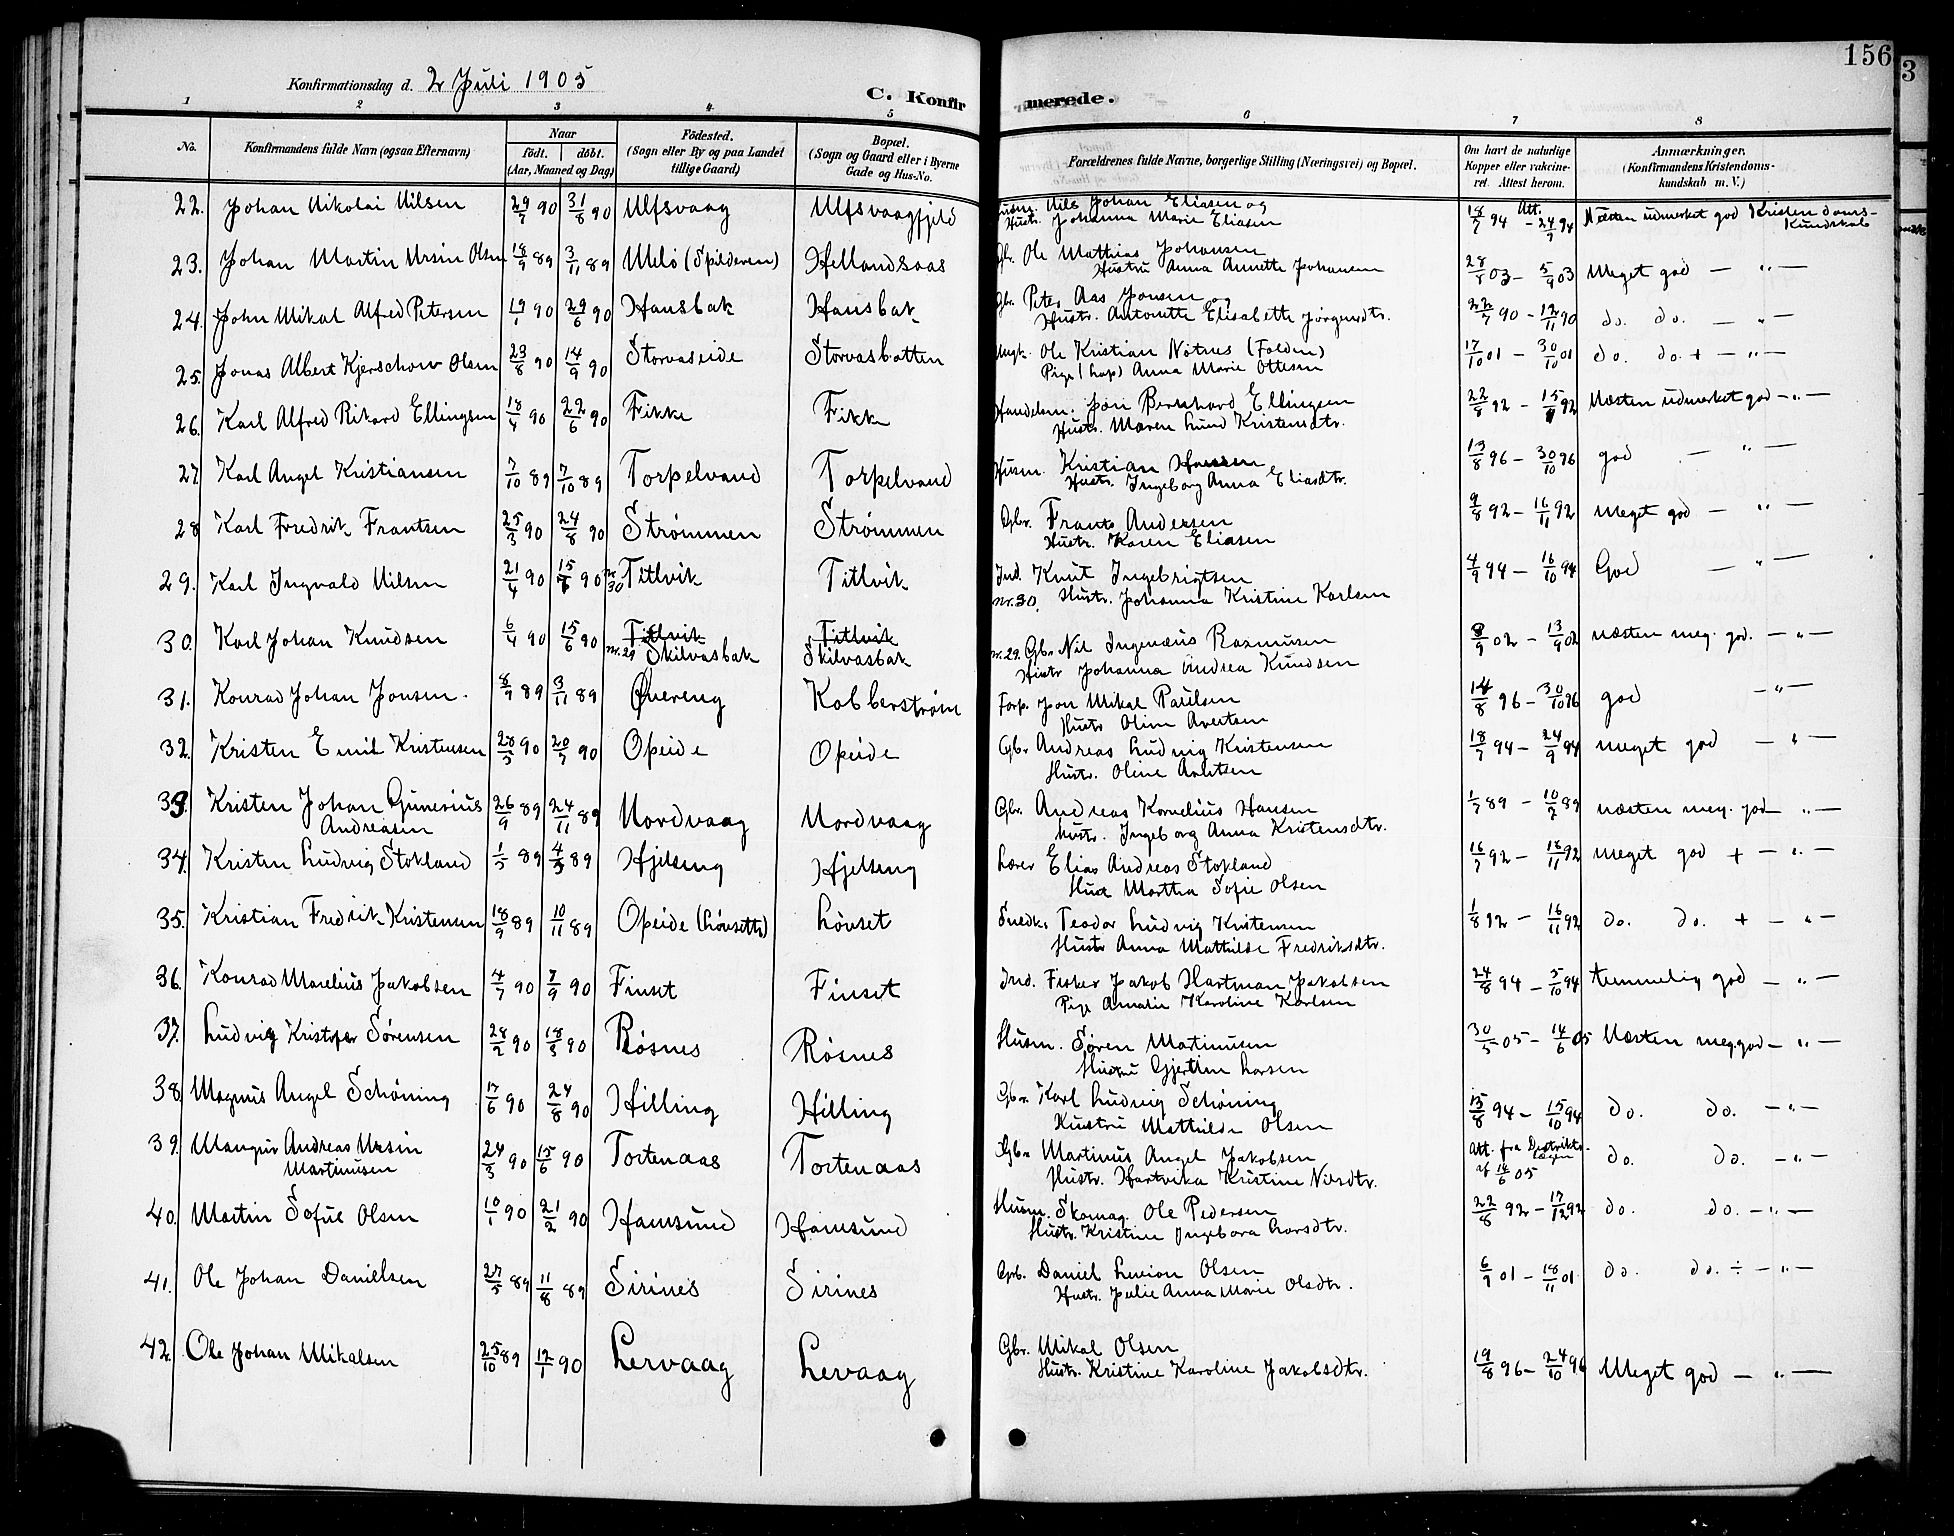 156
3
Konfirmationsdag d. 2 Juli 1905
C. Konfirmerede.
1 2 3 4 5 6 7 8
No.
Konfirmandens fulde Navn (ogsaa Efternavn)
Naar
født. døbt.
(Aar, Maaned og Dag)
Fødested.
(Sogn eller By og paa Landet
tillige Gaard)
Bopæl.
(Sogn og Gaard eller i Byerne
Gade og Hus-No.
Forældrenes fulde Navne, borgerlige Stilling (Næringsvei) og Bopæl.
Om havt de naturlige
Kopper eller vakcine-
ret. Attest herom.
Anmærkninger,
(Konfirmandens Kristendoms-
kundskab m. V.)
22. Johan Nikolai Nilsen 29/7 90 31/8 90 Ulfsvaag Ulfsvaagfjeld Husm. Nils Johan Eliasen og 18/7 94 Att. - 24/9 94 Næsten udmerket god Kristendoms-
Hustr. Johanna Marie Eliasen Kundskab
23. Johan Martin Ursin Olsen 18/9 89 3/11 89 Melö (Spilderen) Hellandsaas Gbr. Ole Mathias Johansen 28/8 03 - 5/9 03 Meget god — „ —
Hustru Anna Annette Johansen
24. John Mikal Alfred Petersen 19/1 90 29/6 90 Hansbak Hansbak Gbr. Peter Aas Jonsen og 22/7 90 - 12/11 90 do. do. — „ —
Hustr. Antonette Elisabette Jørgensdtr.
25. Jonas Albert Kjerschow Olsen 23/8 90 14/9 90 Storvaseide Storvasbotten Ungk. Ole Kristian Nötnes (Folden) 17/10 01 - 30/10 01 do. do. + — „ —
Pige (Lap) Anna Marie Ottesen
26. Karl Alfred Rikard Ellingsen 18/4 90 22/6 90 Fikke Fikke Handelsm. Jøn Bernhard Ellingsen 22/8 92 - 15/9 92 Næsten udmerket god — „ —
Hustr. Maren Lund Kristensdtr.
27 Karl Angel Kristiansen 7/10 89 7/10 89 Torpelvand Torpelvand Husm. Kristian Hansen 13/8 96 - 30/10 96 god — „ —
Hustr. Ingeborg Anna Eliasdtr.
28 Karl Fredrik Frantsen 25/3 90 24/8 90 Strømmen Strømmen Gbr. Frants Andersen 9/8 92 - 16/11 92 Meget god — „ —
Hustr. Karen Eliasen
29. Karl Ingvald Nilsen 21/4 90 15/6 90 nr 30 Titlvik Titlvik Ind. Knut Ingebrigtsen 4/9 94 - 16/10 94 God — „ —
nr. 30. Hustr. Johanna Kristine Karlsen
30. Karl Johan Knudsen 6/4 90 15/6 90 Titlvik Titlvik nr. 29. Gbr. Nil Ingenæus Rasmussen 8/9 02 - 13/9 02 næsten meg. god. — „ —
nr. 29 Skilvasbak Skilvasbak Hustr Johanna Andrea Knudsen
31. Konrad Johan Jonsen. 8/9 89 3/11 89 Øvereng Kobberstrøm Forp. Jon Mikal Paulsen 14/8 96 - 30/10 96 god — „ —
Hustr Olin Avertsen
32. Kristen Emil Kristensen 28/5 90 20/7 90 Opeide Opeide Gbr Andreas Ludvig Kristensen 18/7 94 - 24/9 94 meget god — „ —
Hustr. Oline
33. Kristen Johan Gunerius 26/9 89 24/11 89 Nordvaag Nordvaag Gbr. Andreas Kornelius Hansen 1/7 89 - 10/2 89 næsten meg. god — „ —
Andreasen Hustr. Ingeborg Anna Kristensdtr.
34. Kristen Ludvig Stokland 1/3 89 4/3 89 Hjelseng Hjelseng Lærer Elias Andreas Stokland 16/7 92 - 18/11 92 meget god + — „ —
Hust Martha Sofie Olsen
35. Kristian Fredrik Kristensen 18/9 89 10/11 89 Opeide (Løvsette) Løvset Snedk. Teodor Ludvig Kristensen 1/8 92 - 16/11 92 do. do. + — „ —
Hustr Anna Mathilde Fredriksdtr.
36. Konrad Marelius Jakobsen 4/7 90 7/9 90 Finset Finset Ind. Fisker Jakob Hartman Jakobsen 24/8 94 - 5/10 94 temmelig god — „ —
Pige Amalie Karoline Karlsen
37. Ludvig Kristofer Sørensen 28/2 90 18/3 90 Røsnes Røsnes Husm. Søren Martinusen 30/5 05 - 14/6 05 Næsten meg. god — „ —
Hustru Gjertin Larsen
38 Magnus Angel Schöning 17/6 90 24/8 90 Hilling Hilling Gbr. Karl Ludvig Schöning 13/8 94 - 15/10 94 do. do. — „ —
Hustru Mathilde Olsen
39. Mangus Andreas Ursin 24/3 90 15/6 90 Tortenaas Tortenaas Gbr. Martinus Angel Jakobsen Att. fra Destrikts- do. do. — „ —
Martinusen Hustr. Hartvika Kristine Nilsdtr. lægen af 14/6 05
40. Martin Sofus Olsen 10/1 90 21/2 90 Hamsund Hamsund Husm. Skomag. Ole Pedersen 22/8 92 - 17/12 92 do. do. — „ —
Hustr. Kristine Ingeborg Larsdtr.
41. Ole Johan Danielsen 27/5 89 11/8 89 Sirines Sirines Gbr. Daniel Olsen 6/9 01 - 18/11 01 do. do. ÷ — „ —
Hustr. Julie Anna Marie Olsdtr.
42. Ole Johan Mikalsen 25/10 89 12/1 90 Lervaag Levaag Gbr. Mikal Olsen 19/8 96 - 24/10 96 Meget god — „ —
Hustr. Kristine Karoline Jakobsdtr.